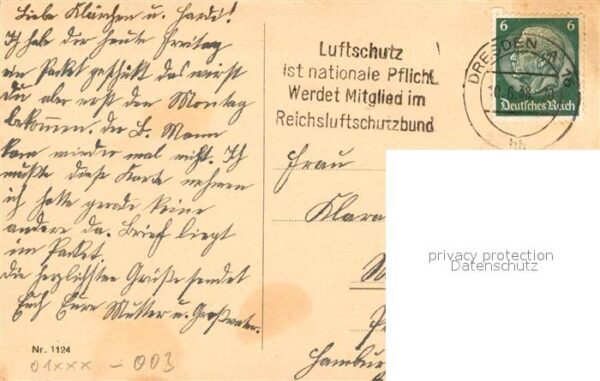 Liebe Klärchen u. Hardi!
Ich hab dir heute Freitag
ein Packet geschickt das wirst
du aber erst den Montag
bekommen. der L. Mann
kam wieder mal nicht. Ich
mußte diese Karte nehmen
ich hatte gerade keine
andere da. Brief liegt
im Packet.
die herzlichsten Grüße sendet
Euch Eure Mutter u. Großvater.
Nr. 1124
01xxx - 003
Luftschutz
ist nationale Pflicht
Werdet Mitglied im
Reichsluftschutzbund
DRESDEN A
10.6.38
6 6
Deutsches Reich
Frau
Klara
Hamburg
privacy protection
Datenschutz